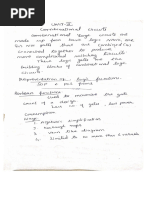 UNIT-II
Combinational Circuits
Combinational logic circuits are
made up from basic logic NAND, NOR
or NOT gates that are "Combined" or
connected together to produce
more complicated switching circuits
These logic gates are the
building blocks of combinational logic
circuits
Representation of logic function
SOP & POS forms
Boolean function
used to minimize the gate
count of a design
less no of gates, less power
Consumption
1. Algebraic simplification
3. Venn like diagram
4. limited to no more than 6 variables